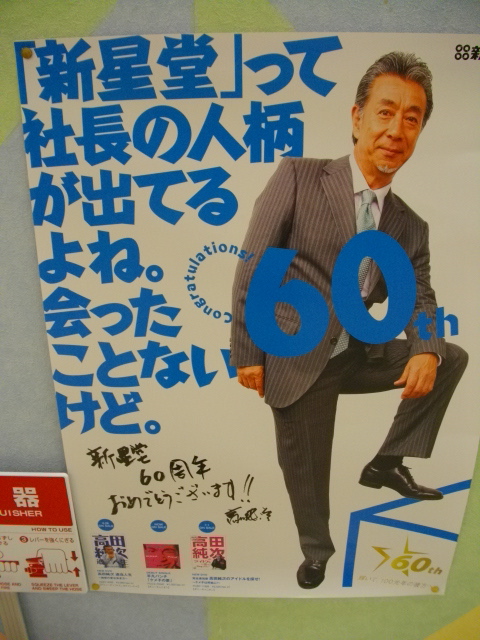 「新星堂」って
社長の人柄
が出てる
よね。
会った
ことない
けど。
Congratulations!
60th
新星堂
60周年
おめでとうございます!!
高田
純次
高田
純次
60th
器
UISHER
HOW TO USE
3 レバーを強くにぎる
SQUEEZE THE LEVER